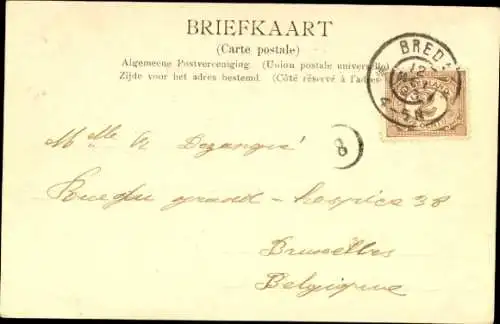 BRIEFKAART
(Carte postale)
Algemeene Postvereeniging. (Union postale universelle)
Zijde voor het adres bestemd. (Côté réservé à l'adres
BREDA
12
4-5N
8
Melle A Dezangré
Rue du grand-hospice 38
Bruxelles
Belgique